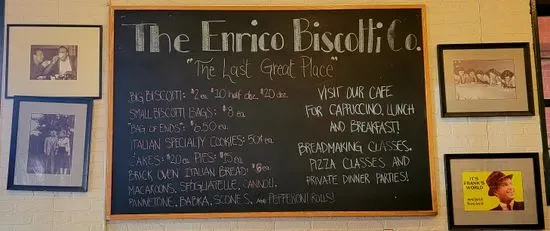 The Enrico Biscotti Co.
"The Last Great Place"
BIG BISCOTTI: $2 ea. $10 half doz. $20 doz.
SMALL BISCOTTI BAGS: $8 ea.
"BAG OF ENDS": $6.50 ea.
ITALIAN SPECIALTY COOKIES: 50¢ ea.
CAKES: $20 ea. PIES: $15 ea.
BRICK OVEN ITALIAN BREAD! $6 ea.
MACAROONS, SFOGLIATELLE, CANNOLI,
PANNETONE, BABKA, SCONES, AND PEPPERONI ROLLS!
VISIT OUR CAFE
FOR CAPPUCCINO, LUNCH
AND BREAKFAST!
BREADMAKING CLASSES,
PIZZA CLASSES AND
PRIVATE DINNER PARTIES!
IT'S
FRANK'S
WORLD